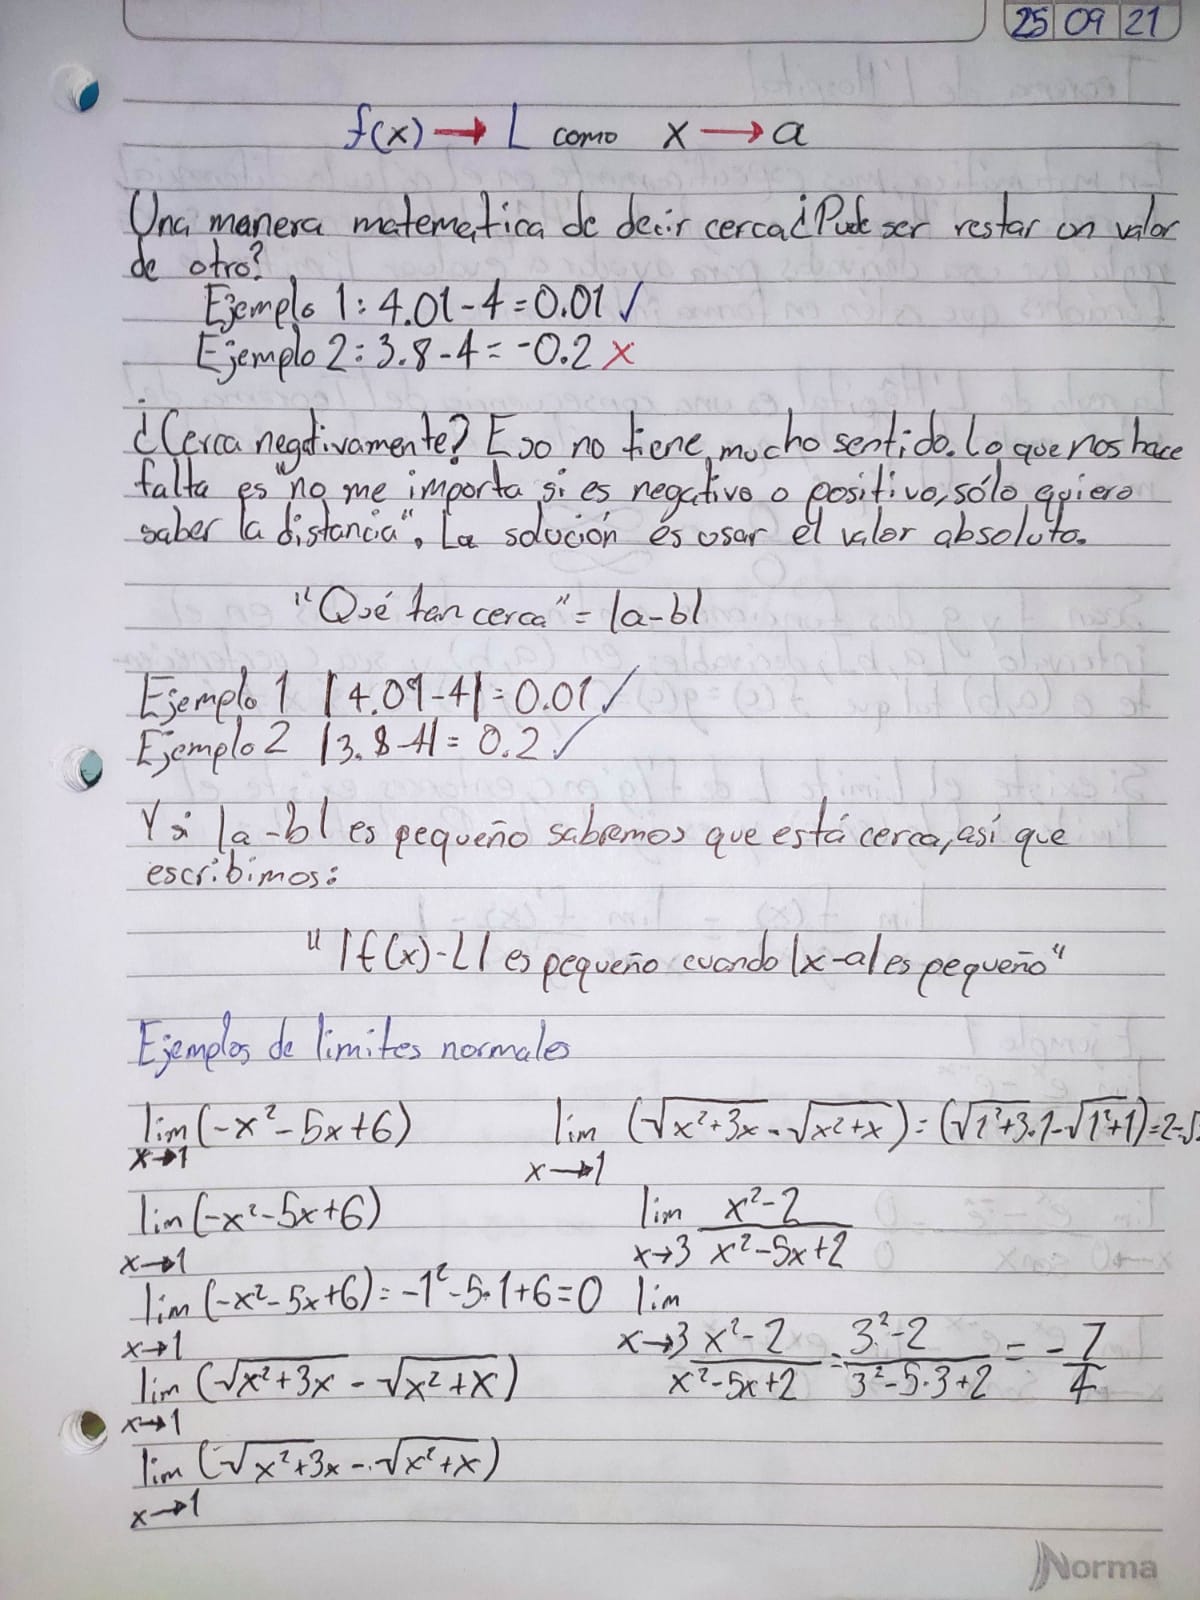 25 09 21
f(x) → L como x → a
Una manera matematica de decir cerca¿Puede ser restar un valor
de otro?
Ejemplo 1: 4.01-4=0.01 ✓
Ejemplo 2: 3.8-4= -0.2 x
¿Cerca negativamente? Eso no tiene mucho sentido. Lo que nos hace
falta es "no me importa si es negativo o positivo, sólo quiero
saber la distancia". La solución es usar el valor absoluto.
"Qué tan cerca" = |a-b|
Ejemplo 1 |4.01-4|=0.01 ✓
Ejemplo 2 |3.8-4|= 0.2 ✓
Y si |a-b| es pequeño sabremos que está cerca, así que
escribimos:
"|f(x)-L| es pequeño cuando |x-a| es pequeño"
Ejemplos de limites normales
lim (-x²-5x+6)
x→1
lim (-x²-5x+6)
x→1
lim (-x²-5x+6)=-1²-5·1+6=0
x→1
lim (√x²+3x - √x²+x)
x→1
lim (√x²+3x - √x²+x)
x→1
lim (√x²+3x - √x²+x)=(√1²+3·1-√1²+1)=2-√
x→1
lim x²-2
x→3 x²-5x+2
lim
x→3 x²-2 = 3²-2 = -7
x²-5x+2 3²-5·3+2 4
Norma